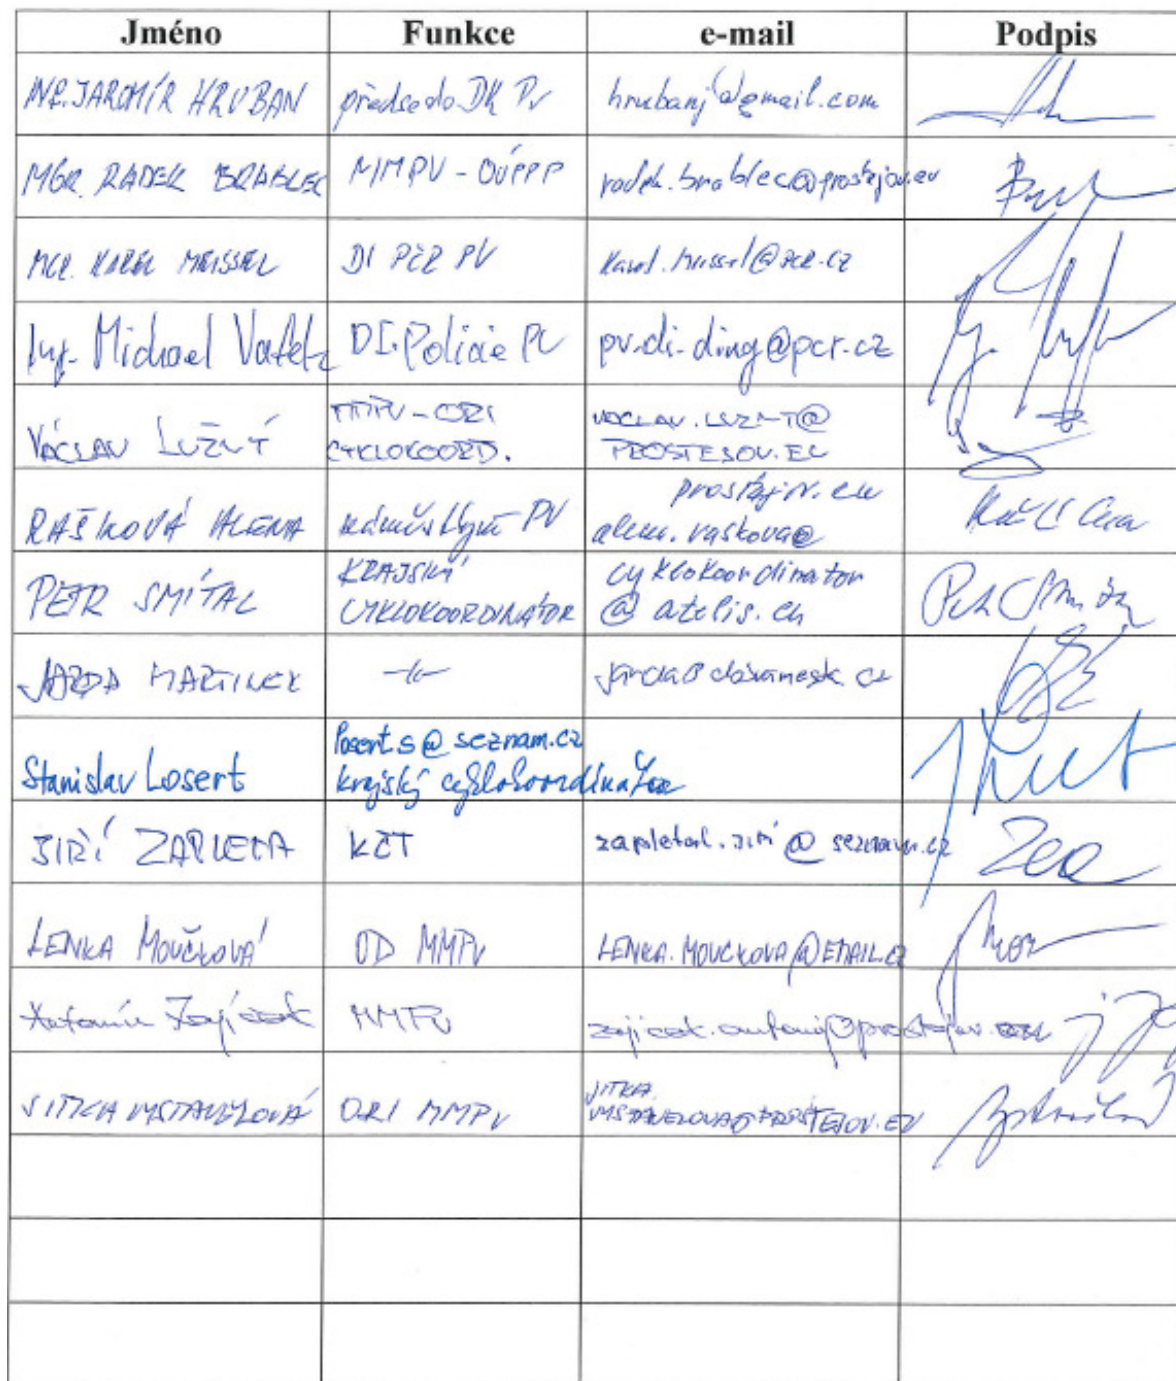 Jméno Funkce e-mail Podpis
ING. JAROMÍR HRUBAN předseda DK PV hrubanj@gmail.com
MGR. RADEK BRABLEC MMPV - OÚPPP radek.brablec@prostejov.eu
MGR. KAREL MEISSEL DI PČR PV karel.meissel@pcr.cz
Ing. Michael Vafek DI Policie PV pv.di.ding@pcr.cz
VÁCLAV LUŽNÝ MMPV - ORI VACLAV.LUZNY@
CYKLOKOORD. PROSTEJOV.EU
prostejov.eu
RAŠKOVÁ ALENA náměstkyně PV alena.raskova@
KRAJSKÝ cyklokoordinator
PETR SMÍTAL CYKLOKOORDINÁTOR @ atelis.eu
JARDA MARTINEK -||- jarda@dobramesta.cz
losert.s@seznam.cz
Stanislav Losert krajský cyklokoordinátor
JIŘÍ ZAPLETAL KČT zapletal.jiri@seznam.cz
LENKA MOUČKOVÁ OD MMPV LENKA.MOUCKOVA@EMAIL.CZ
Antonín Zajíček MMPV
JITKA.
JITKA VYSTAVĚLOVÁ ORI MMPV VYSTAVELOVA@PROSTEJOV.EU